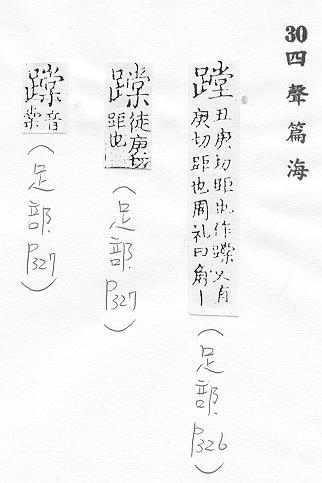 30四聲篇海
蹚
丑庚切距也作又直
庚切距也周礼曰角丨
(足部P326)
徒庚切
距也
(足部P327)
音
(足部P327)